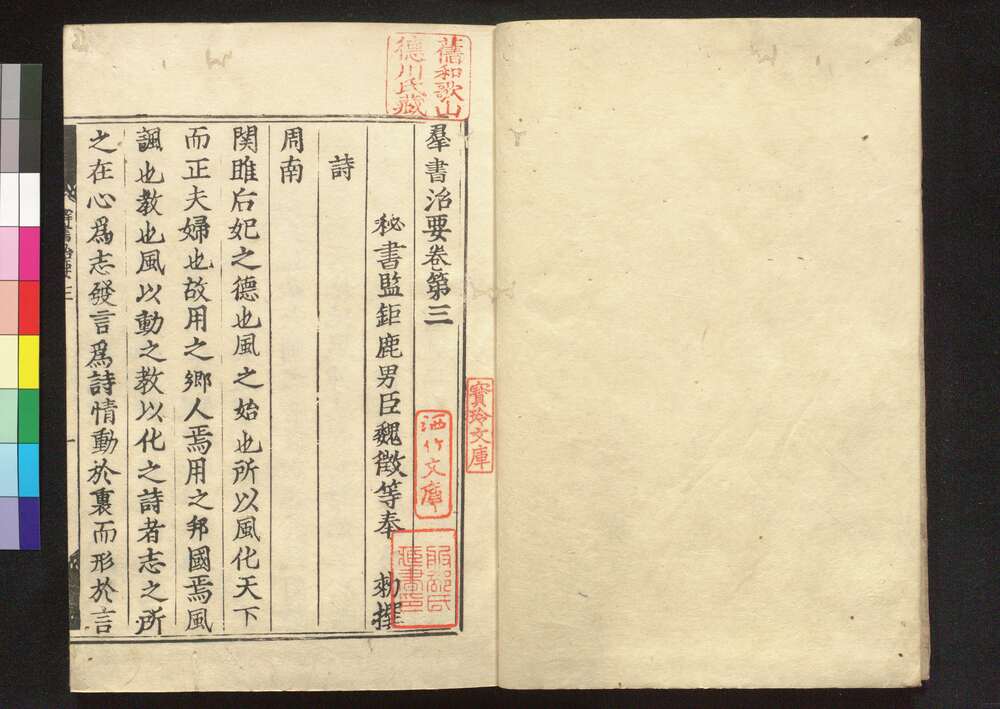 羣書治要卷第三
秘書監鉅鹿男臣魏徵等奉 勑撰
詩
周南
関雎后妃之德也風之始也所以風化天下
而正夫婦也故用之鄉人焉用之邦國焉風
諷也教也風以動之教以化之詩者志之所
之在心爲志發言爲詩情動於裏而形於言
群書治要三
一
舊和歌山
德川氏藏
寶玲文庫
洒竹文庫
服部氏
藏書印